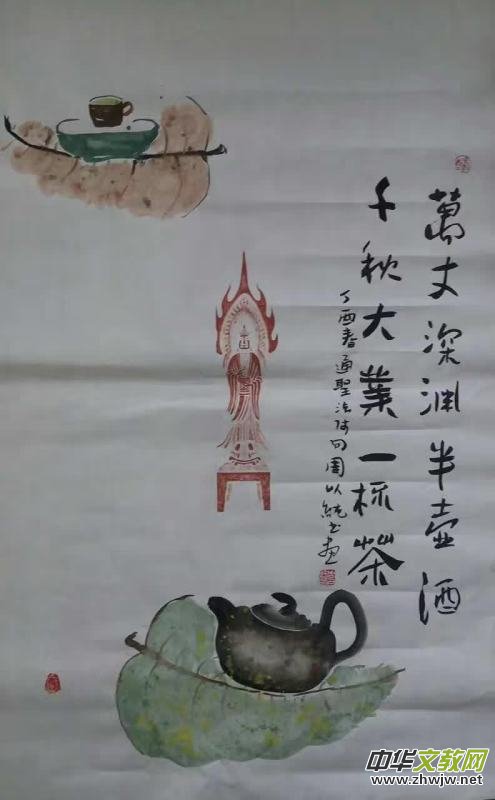 萬丈深渊半壶酒
千秋大業一杯茶
丁酉春通聖法师四周以純书画
中华文教网
www.zhwjw.net